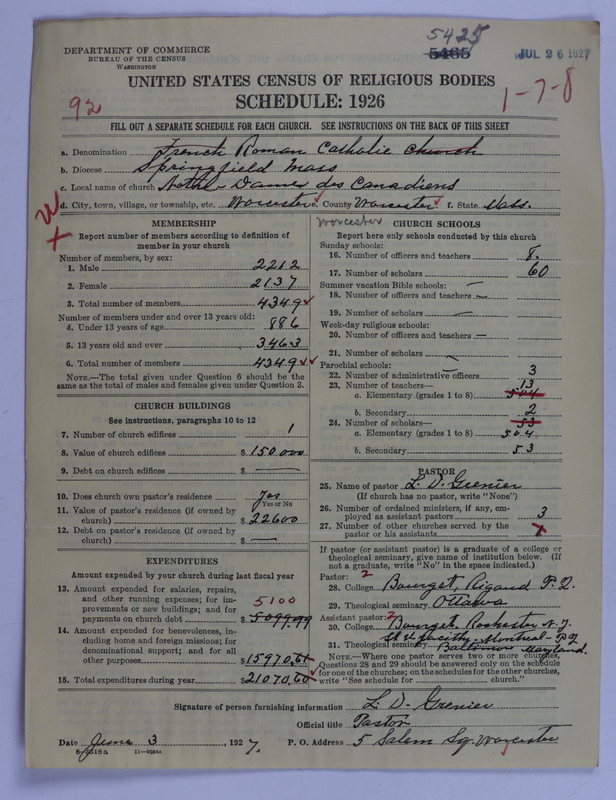 5425
DEPARTMENT OF COMMERCE
BUREAU OF THE CENSUS
WASHINGTON
5465
JUL 26 1927
UNITED STATES CENSUS OF RELIGIOUS BODIES
SCHEDULE: 1926
92
1-7-8
FILL OUT A SEPARATE SCHEDULE FOR EACH CHURCH. SEE INSTRUCTIONS ON THE BACK OF THIS SHEET
a. Denomination French Roman Catholic Church
b. Diocese Springfield Mass
c. Local name of church Notre-Dame des Canadiens
d. City, town, village, or township, etc. Worcester e. County Worcester f. State Mass.
Worcester
MEMBERSHIP
Report number of members according to definition of member in your church
Number of members, by sex:
1. Male 2212
2. Female 2137
3. Total number of members 4349
Number of members under and over 13 years old:
4. Under 13 years of age 886
5. 13 years old and over 3463
6. Total number of members 4349
NOTE.—The total given under Question 6 should be the same as the total of males and females given under Question 3.
CHURCH BUILDINGS
See instructions, paragraphs 10 to 12
7. Number of church edifices 1
8. Value of church edifices $ 150,000
9. Debt on church edifices $ —
10. Does church own pastor's residence Yes
Yes or No
11. Value of pastor's residence (if owned by church) $ 22600
12. Debt on pastor's residence (if owned by church) $ —
EXPENDITURES
Amount expended by your church during last fiscal year
13. Amount expended for salaries, repairs, and other running expenses; for improvements or new buildings; and for payments on church debt $ 5099.99
5100
14. Amount expended for benevolences, including home and foreign missions; for denominational support; and for all other purposes $ 15970,61
15. Total expenditures during year $ 21070,60
CHURCH SCHOOLS
Report here only schools conducted by this church
Sunday schools:
16. Number of officers and teachers 8.
17. Number of scholars 60
Summer vacation Bible schools: —
18. Number of officers and teachers —
19. Number of scholars —
Week-day religious schools:
20. Number of officers and teachers —
21. Number of scholars —
Parochial schools:
22. Number of administrative officers 3
23. Number of teachers—
13
a. Elementary (grades 1 to 8) 504
b. Secondary 2
24. Number of scholars— 53
a. Elementary (grades 1 to 8) 504
b. Secondary 53
PASTOR
25. Name of pastor L. D. Grenier
(If church has no pastor, write "None")
26. Number of ordained ministers, if any, employed as assistant pastors 3
27. Number of other churches served by the pastor or his assistants
If pastor (or assistant pastor) is a graduate of a college or theological seminary, give name of institution below. (If not a graduate, write "No" in the space indicated.)
Pastor: 2
28. College Bourget, Rigaud P.Q.
29. Theological seminary Ottawa
Assistant pastor: 2
30. College Bourget Rochester N.Y.
31. Theological seminary Montreal - P.Q Baltimore Maryland.
NOTE.—Where one pastor serves two or more churches, Questions 28 and 29 should be answered only on the schedule for one of the churches; on the schedules for the other churches, write "See schedule for church."
Signature of person furnishing information L. D. Grenier
Official title Pastor
Date June 3, 1927. P. O. Address 5 Salem Sq. Worcester